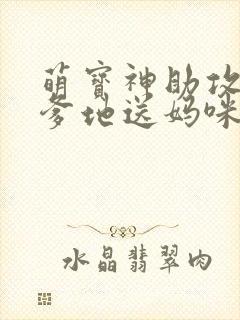 萌宝神助攻
爹地送妈咪
水晶翡翠肉